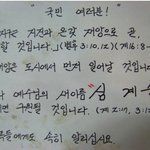 " 국민 여러분! "
구는 지진과 온갖 재앙으로 곧
할 것입니다." (벧후 3:10.12) (계16:8-
재앙은 도시에서 먼저 일어날 것입니다
나 예수님의 새이름 " 심 계 수
으면 구원될 것입니다. (계 2:17, 3:12
족들에게도 속히 알리십시요.